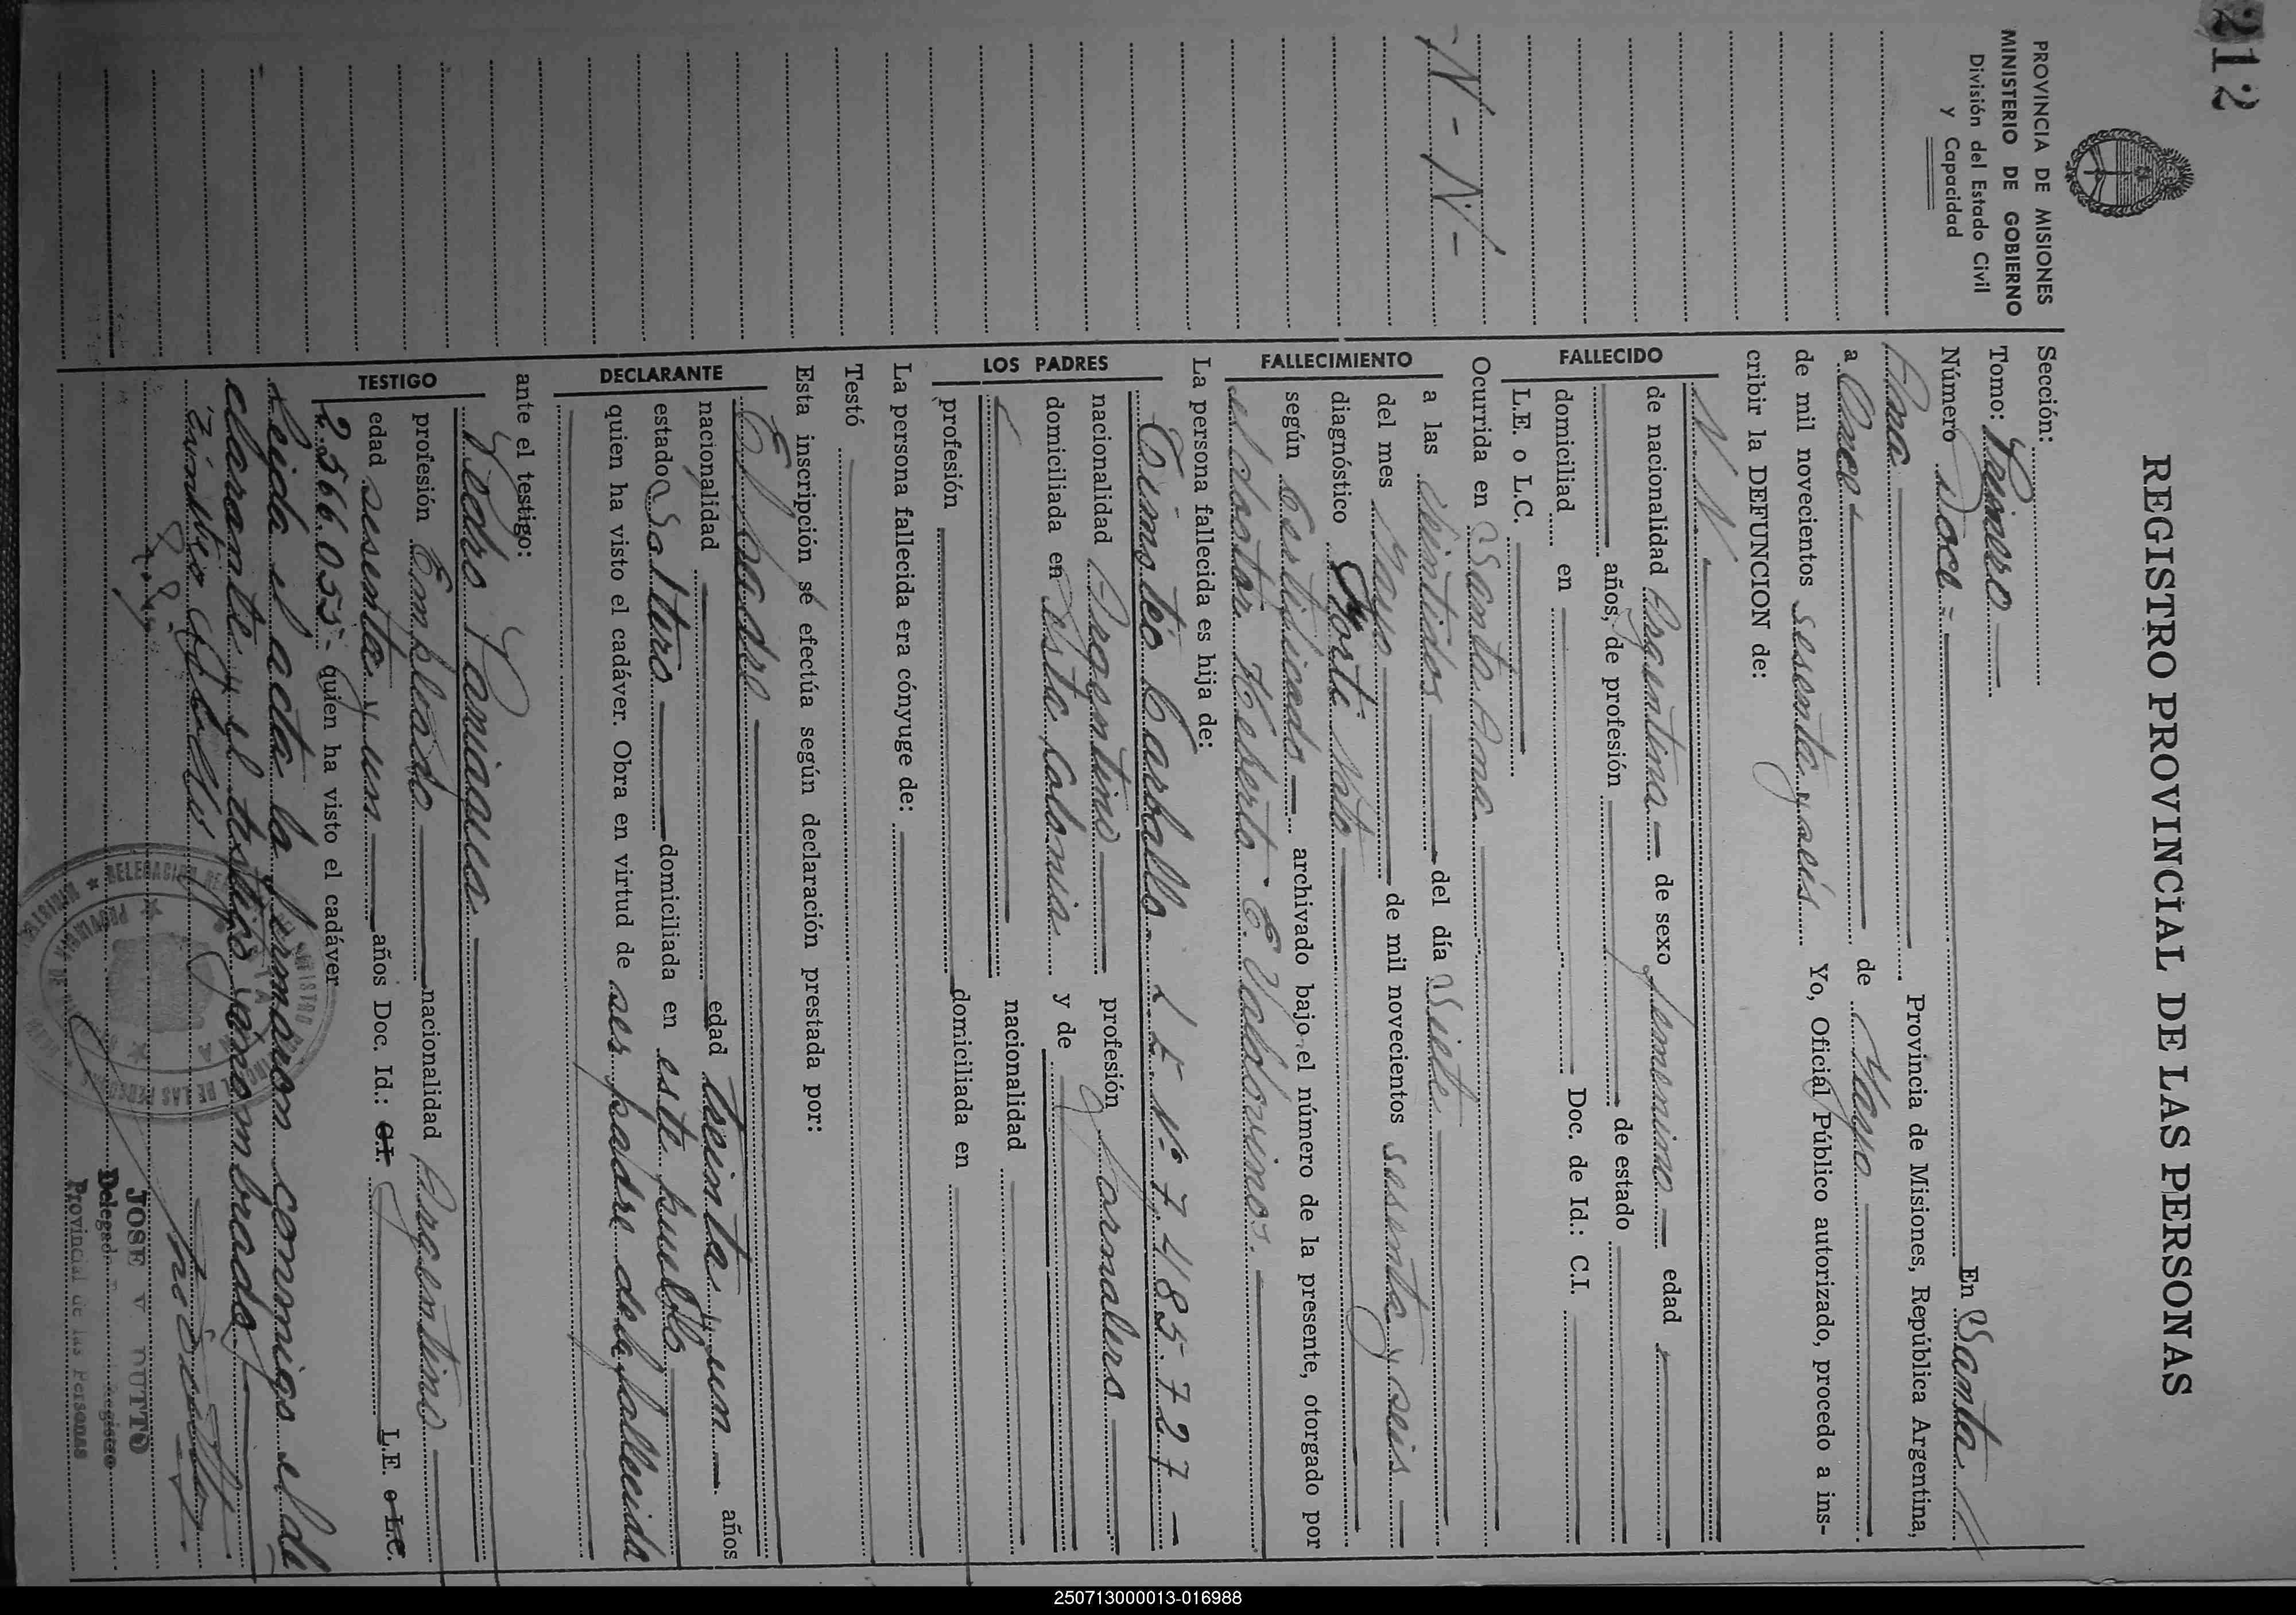 212
REGISTRO PROVINCIAL DE LAS PERSONAS
PROVINCIA DE MISIONES
MINISTERIO DE GOBIERNO
División del Estado Civil
y Capacidad
N-N-
Sección:
Tomo: Primero
Número Doce - En Santa
Ana Provincia de Misiones, República Argentina,
a Once de Mayo
de mil novecientos sesenta y seis Yo, Oficial Público autorizado, procedo a ins-
cribir la DEFUNCION de:
FALLECIDO
N N -
de nacionalidad Argentina de sexo femenino edad
años, de profesión de estado
domiciliad en Doc. de Id.: C.I.
L.E. o L.C.
Ocurrida en Santa Ana
FALLECIMIENTO
a las Veintidos del día Siete
del mes Mayo de mil novecientos sesenta y seis
diagnóstico Morti nato
según Certificado archivado bajo el número de la presente, otorgado por
el doctor Heberto E. Valdovinos.
La persona fallecida es hija de:
LOS PADRES
Timoteo Carballo - L E Nº 7.485.727 -
nacionalidad Argentino profesión Jornalero
domiciliada en esta Colonia y de
nacionalidad
profesión domiciliada en
La persona fallecida era cónyuge de:
Testó
Esta inscripción se efectúa según declaración prestada por:
DECLARANTE
El padre
nacionalidad edad treinta y un años
estado Soltero domiciliada en este pueblo
quien ha visto el cadáver. Obra en virtud de ser padre de la fallecida
ante el testigo:
TESTIGO
Pedro Paniagua
profesión Empleado nacionalidad Argentino
edad sesenta y un años Doc. Id.: C.I. L.E. o L.C.
2.566.055- quien ha visto el cadáver
Leida el acta la firmaron conmigo el de
clarante y el testigo nombrado
JOSE V DUTTO
Provincial de las Personas
250713000013-016988